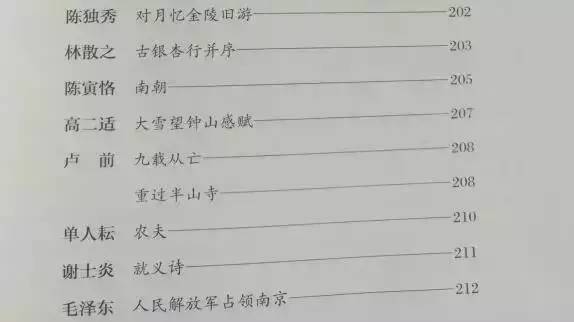 陈独秀 对月忆金陵旧游 202
林散之 古银杏行并序 203
陈寅恪 南朝 205
高二适 大雪望钟山感赋 207
卢前 九载从亡 208
重过半山寺 208
单人耘 农夫 210
谢士炎 就义诗 211
毛泽东 人民解放军占领南京 212